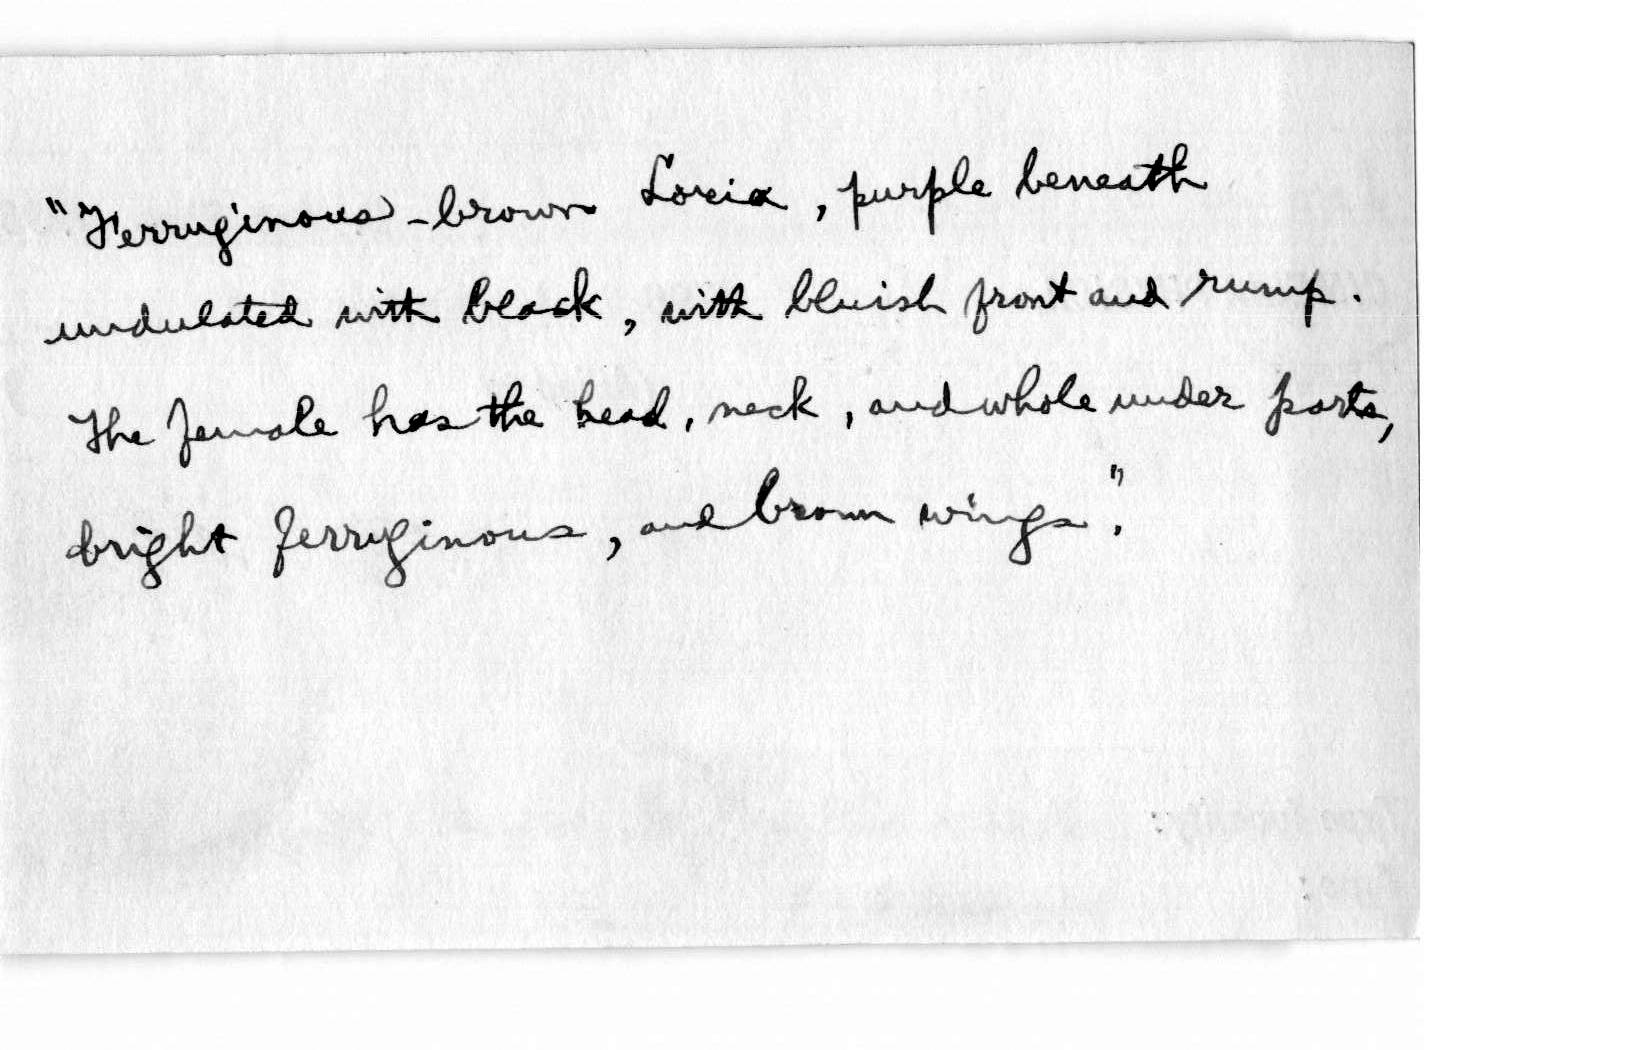 "Ferruginous-brown Loxia, purple beneath
undulated with black, with bluish front and rump.
The female has the head, neck, and whole under parts,
bright ferruginous, and brown wings".